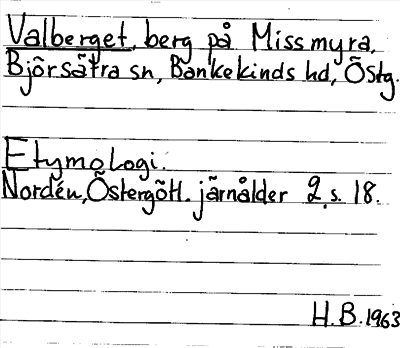 Valberget, berg på Missmyra,
Björsätra sn, Bankekinds hd, Östg.
Etymologi:
Nordén, Östergötl. järnålder 2 s. 18.
H.B. 1963